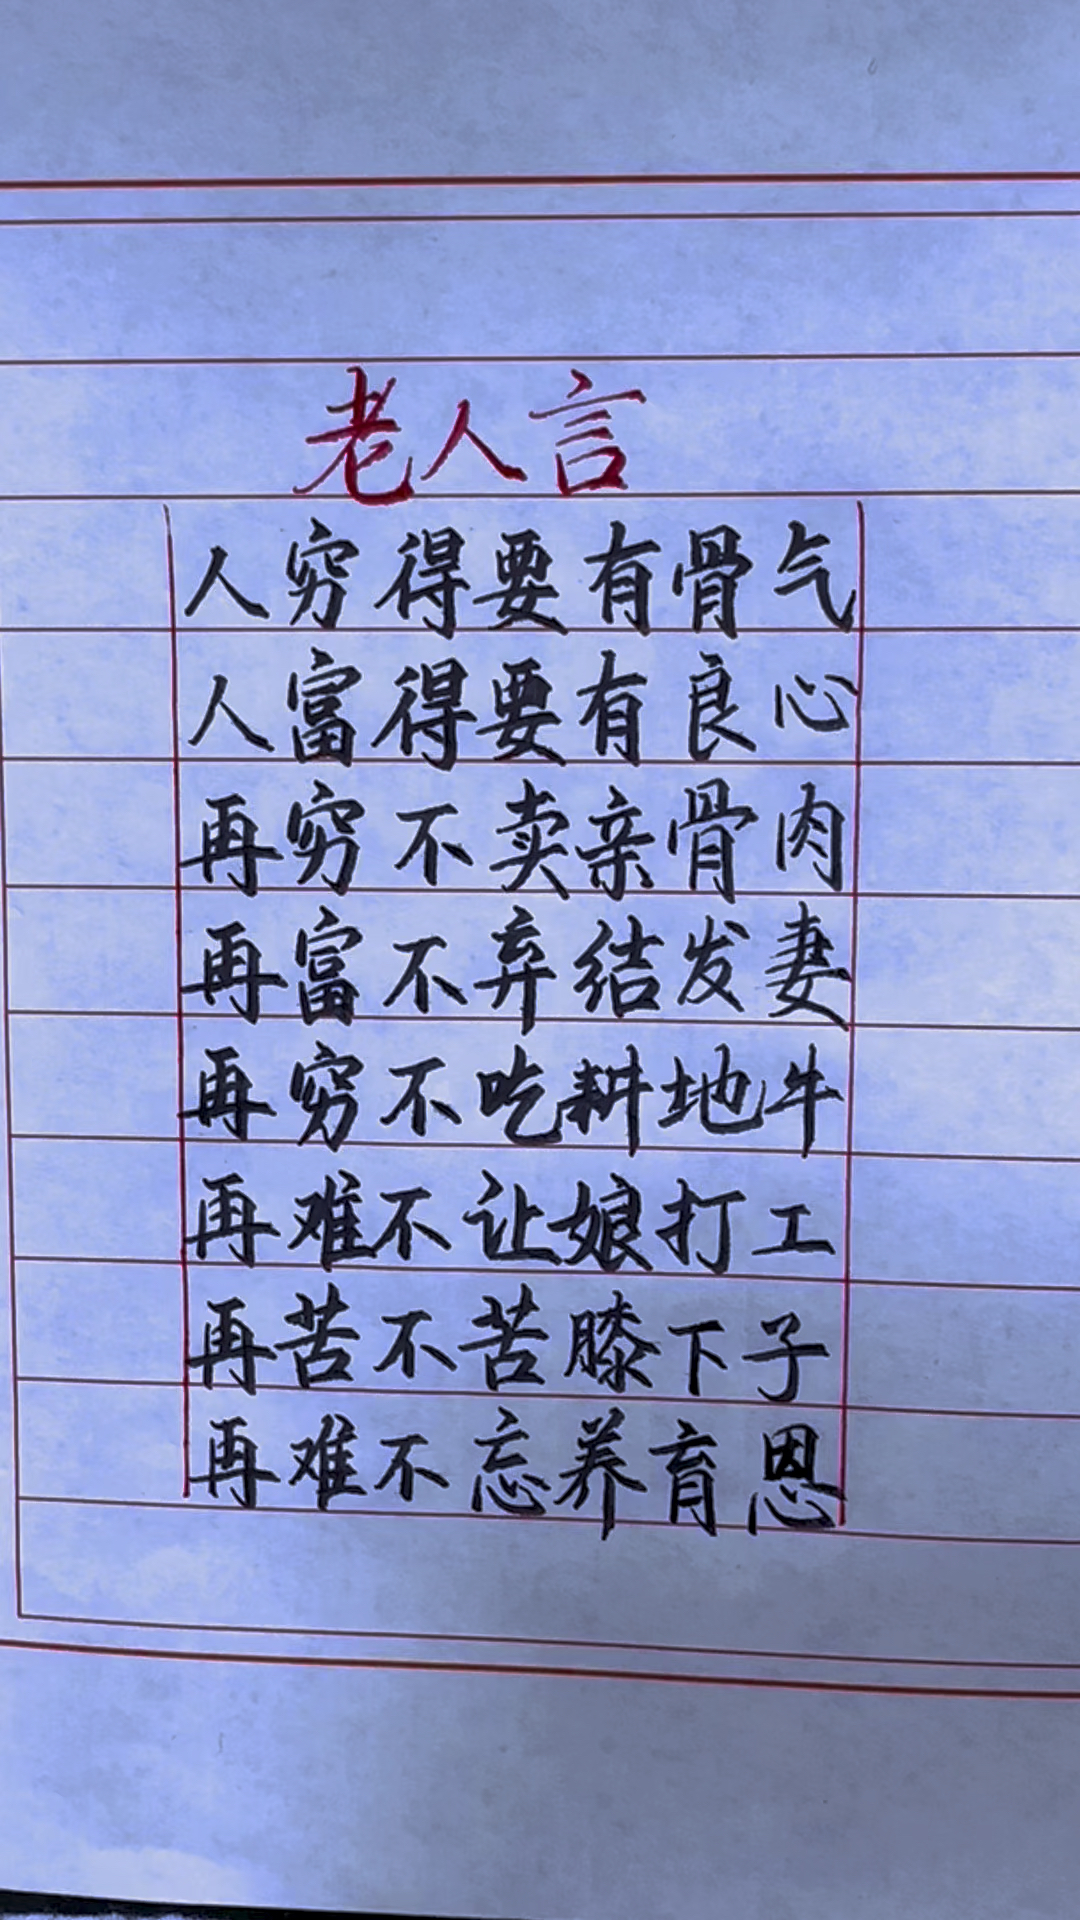 老人言
人穷得要有骨气
人富得要有良心
再穷不卖亲骨肉
再富不弃结发妻
再穷不吃耕地牛
再难不让娘打工
再苦不苦膝下子
再难不忘养育恩